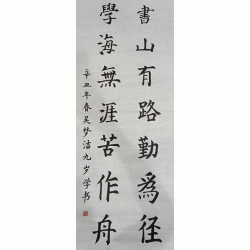 書山有路勤為徑
學海無涯苦作舟
辛丑年春吴梦洁九岁学书